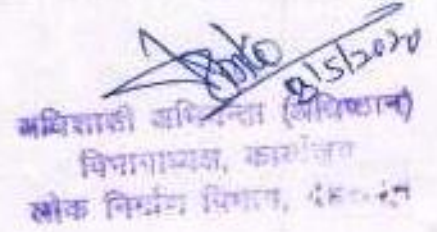 8/5/2020
अधिशासी अभियन्ता (अधिष्ठान)
विभागाध्यक्ष, कार्यालय
लोक निर्माण विभाग,